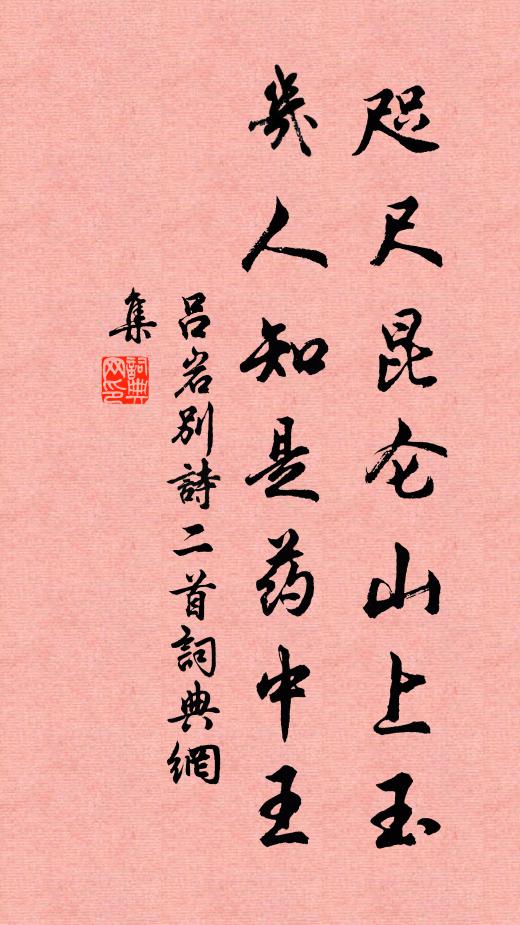 咫尺昆仑山上玉
几人知是药中王
吕岩别詩二首詞典網
集
詞典
网印